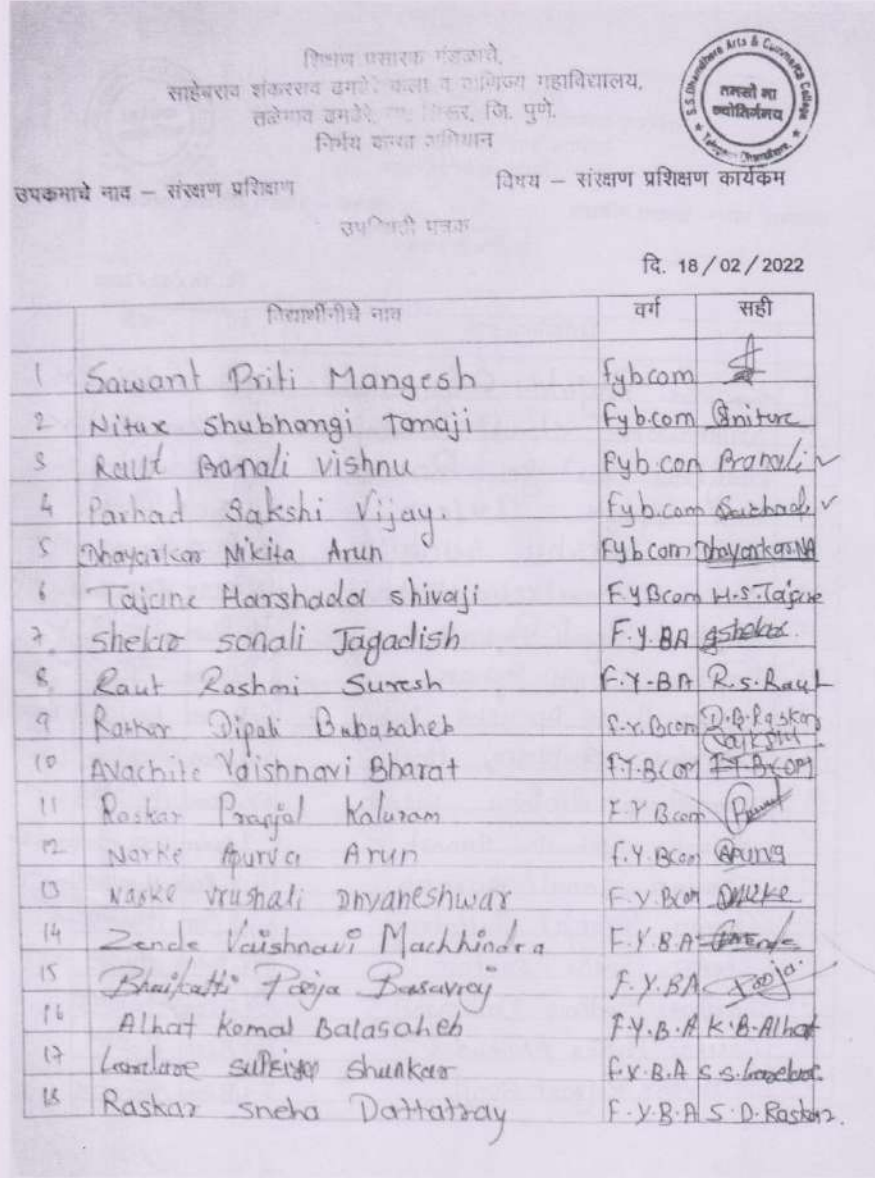 शिक्षण प्रसारक मंडळाचे,
साहेबराव शंकरराव ढमढेरे कला व वाणिज्य महाविद्यालय,
तळेगाव ढमढेरे, ता. शिरूर, जि. पुणे.
निर्भय कन्या अभियान
S.S.Dhamdhere Arts & Commerce College
तमसो मा
ज्योतिर्गमय
★ Talegaon Dhamdhere. ★
उपकमाचे नाव – संरक्षण प्रशिक्षण विषय – संरक्षण प्रशिक्षण कार्यकम
उपस्थिती पत्रक
दि. 18/02/2022
विद्यार्थीनीचे नाव वर्ग सही
1 Sawant Priti Mangesh Fybcom
2 Niture Shubhangi Tanaji Fyb.com Sniture
3 Raut Pranali Vishnu Fyb.con Pranali
4 Parhad Sakshi Vijay. Fyb.com
5 Dhayarkar Nikita Arun Fybcom DhayarkarNA
6 Tajane Harshada shivaji F.YBcom H.S.Tajane
7. Shelar sonali Jagadish F.y.BA Sshelar.
8. Raut Rashmi Suresh F.Y-BA R.S.Raut
9 Raskar Dipali Babasaheb F.Y.Bcom D.B.Raskar
10 Avachite Vaishnavi Bharat F.Y.Bcom
11 Raskar Pranjal Kaluram F.Y Bcom
12 Narke Apurva Arun F.Y.Bcom
13 Narke vrushali Dnyaneshwar F.Y.Bcom
14 Zende Vaishnavi Machhindra F.Y.B.A
15 Bhaikatti Pooja Basavraj F.Y.BA Pooja.
16 Alhat Komal Balasaheb F.Y.B.A K.B.Alhat
17 shankar F.Y.B.A
18 Raskar Sneha Dattatray F.Y.B.A S.D.Raskar.